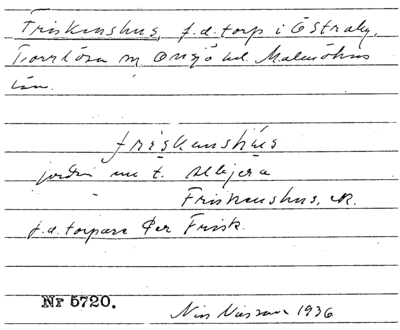 Friskenshus, f.d. torp i Östraby,
Torrlösa sn. Onsjö hd. Malmöhus
län.
friskenshus
jorden nu t. Allejera
Friskenshus, JK.
f.d. torpare Per Frisk.
Nr 5720.
Nils Nilsson 1936